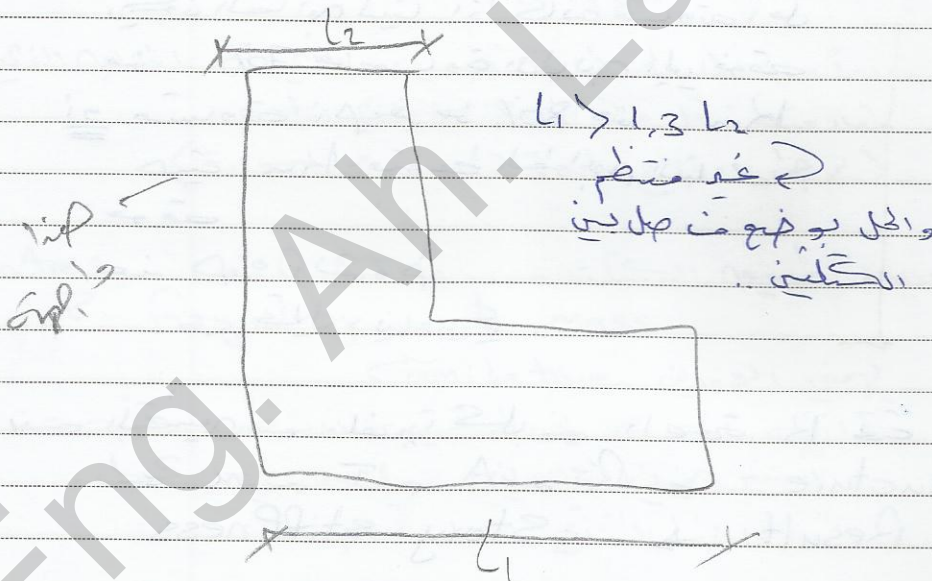 L2
L1 > 1,3 L2
غير منتظم
والحل بوضع فاصل بين
الكتلتين ..
L1
Eng. Ah. La